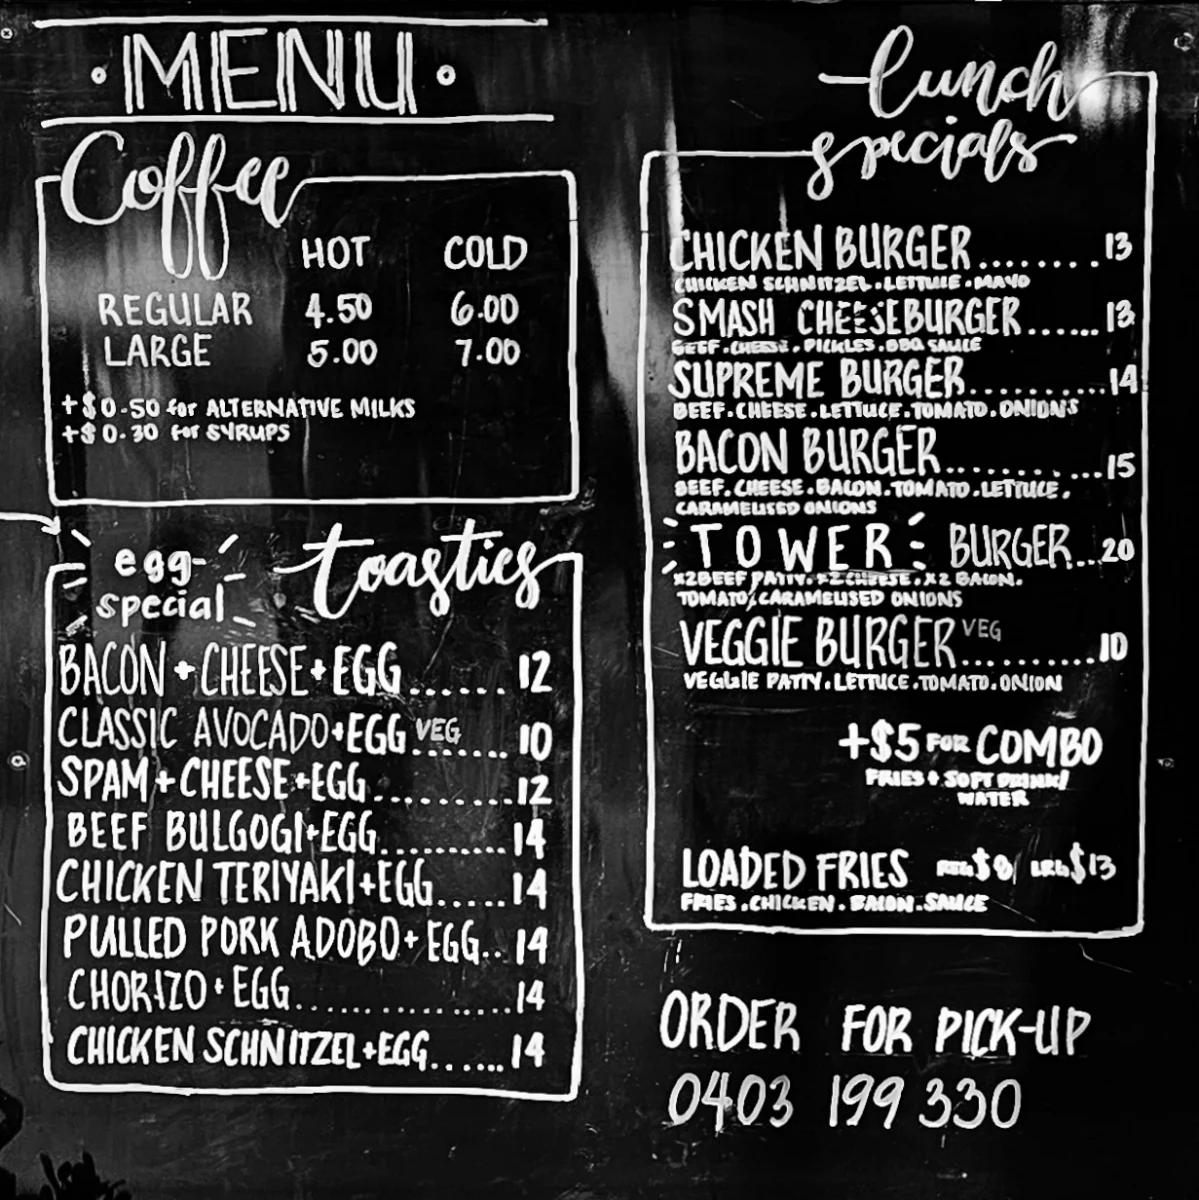 • MENU •
Coffee
HOT COLD
REGULAR 4.50 6.00
LARGE 5.00 7.00
+$0.50 for ALTERNATIVE MILKS
+$0.30 for SYRUPS
egg-
special
toasties
BACON + CHEESE + EGG...... 12
CLASSIC AVOCADO+EGG VEG....... 10
SPAM + CHEESE + EGG..........12
BEEF BULGOGI+EGG..........14
CHICKEN TERIYAKI+EGG.....14
PULLED PORK ADOBO+ EGG.. 14
CHORIZO + EGG................14
CHICKEN SCHNITZEL+EGG......14
lunch
specials
CHICKEN BURGER........13
CHICKEN SCHNITZEL.LETTUCE.MAYO
SMASH CHEESEBURGER......13
BEEF.CHEESE.PICKLES.BBQ SAUCE
SUPREME BURGER..........14
BEEF.CHEESE.LETTUCE.TOMATO.ONIONS
BACON BURGER...........15
BEEF.CHEESE.BACON.TOMATO.LETTUCE.
CARAMELISED ONIONS
TOWER BURGER...20
X2BEEF PATTY.X2CHEESE.X2 BACON.
TOMATO/CARAMELISED ONIONS
VEGGIE BURGER VEG..........10
VEGGIE PATTY.LETTUCE.TOMATO.ONION
+$5 FOR COMBO
FRIES + SOFT DRINK/
WATER
LOADED FRIES REG$9/ LRG$13
FRIES.CHICKEN.BACON.SAUCE
ORDER FOR PICK-UP
0403 199 330